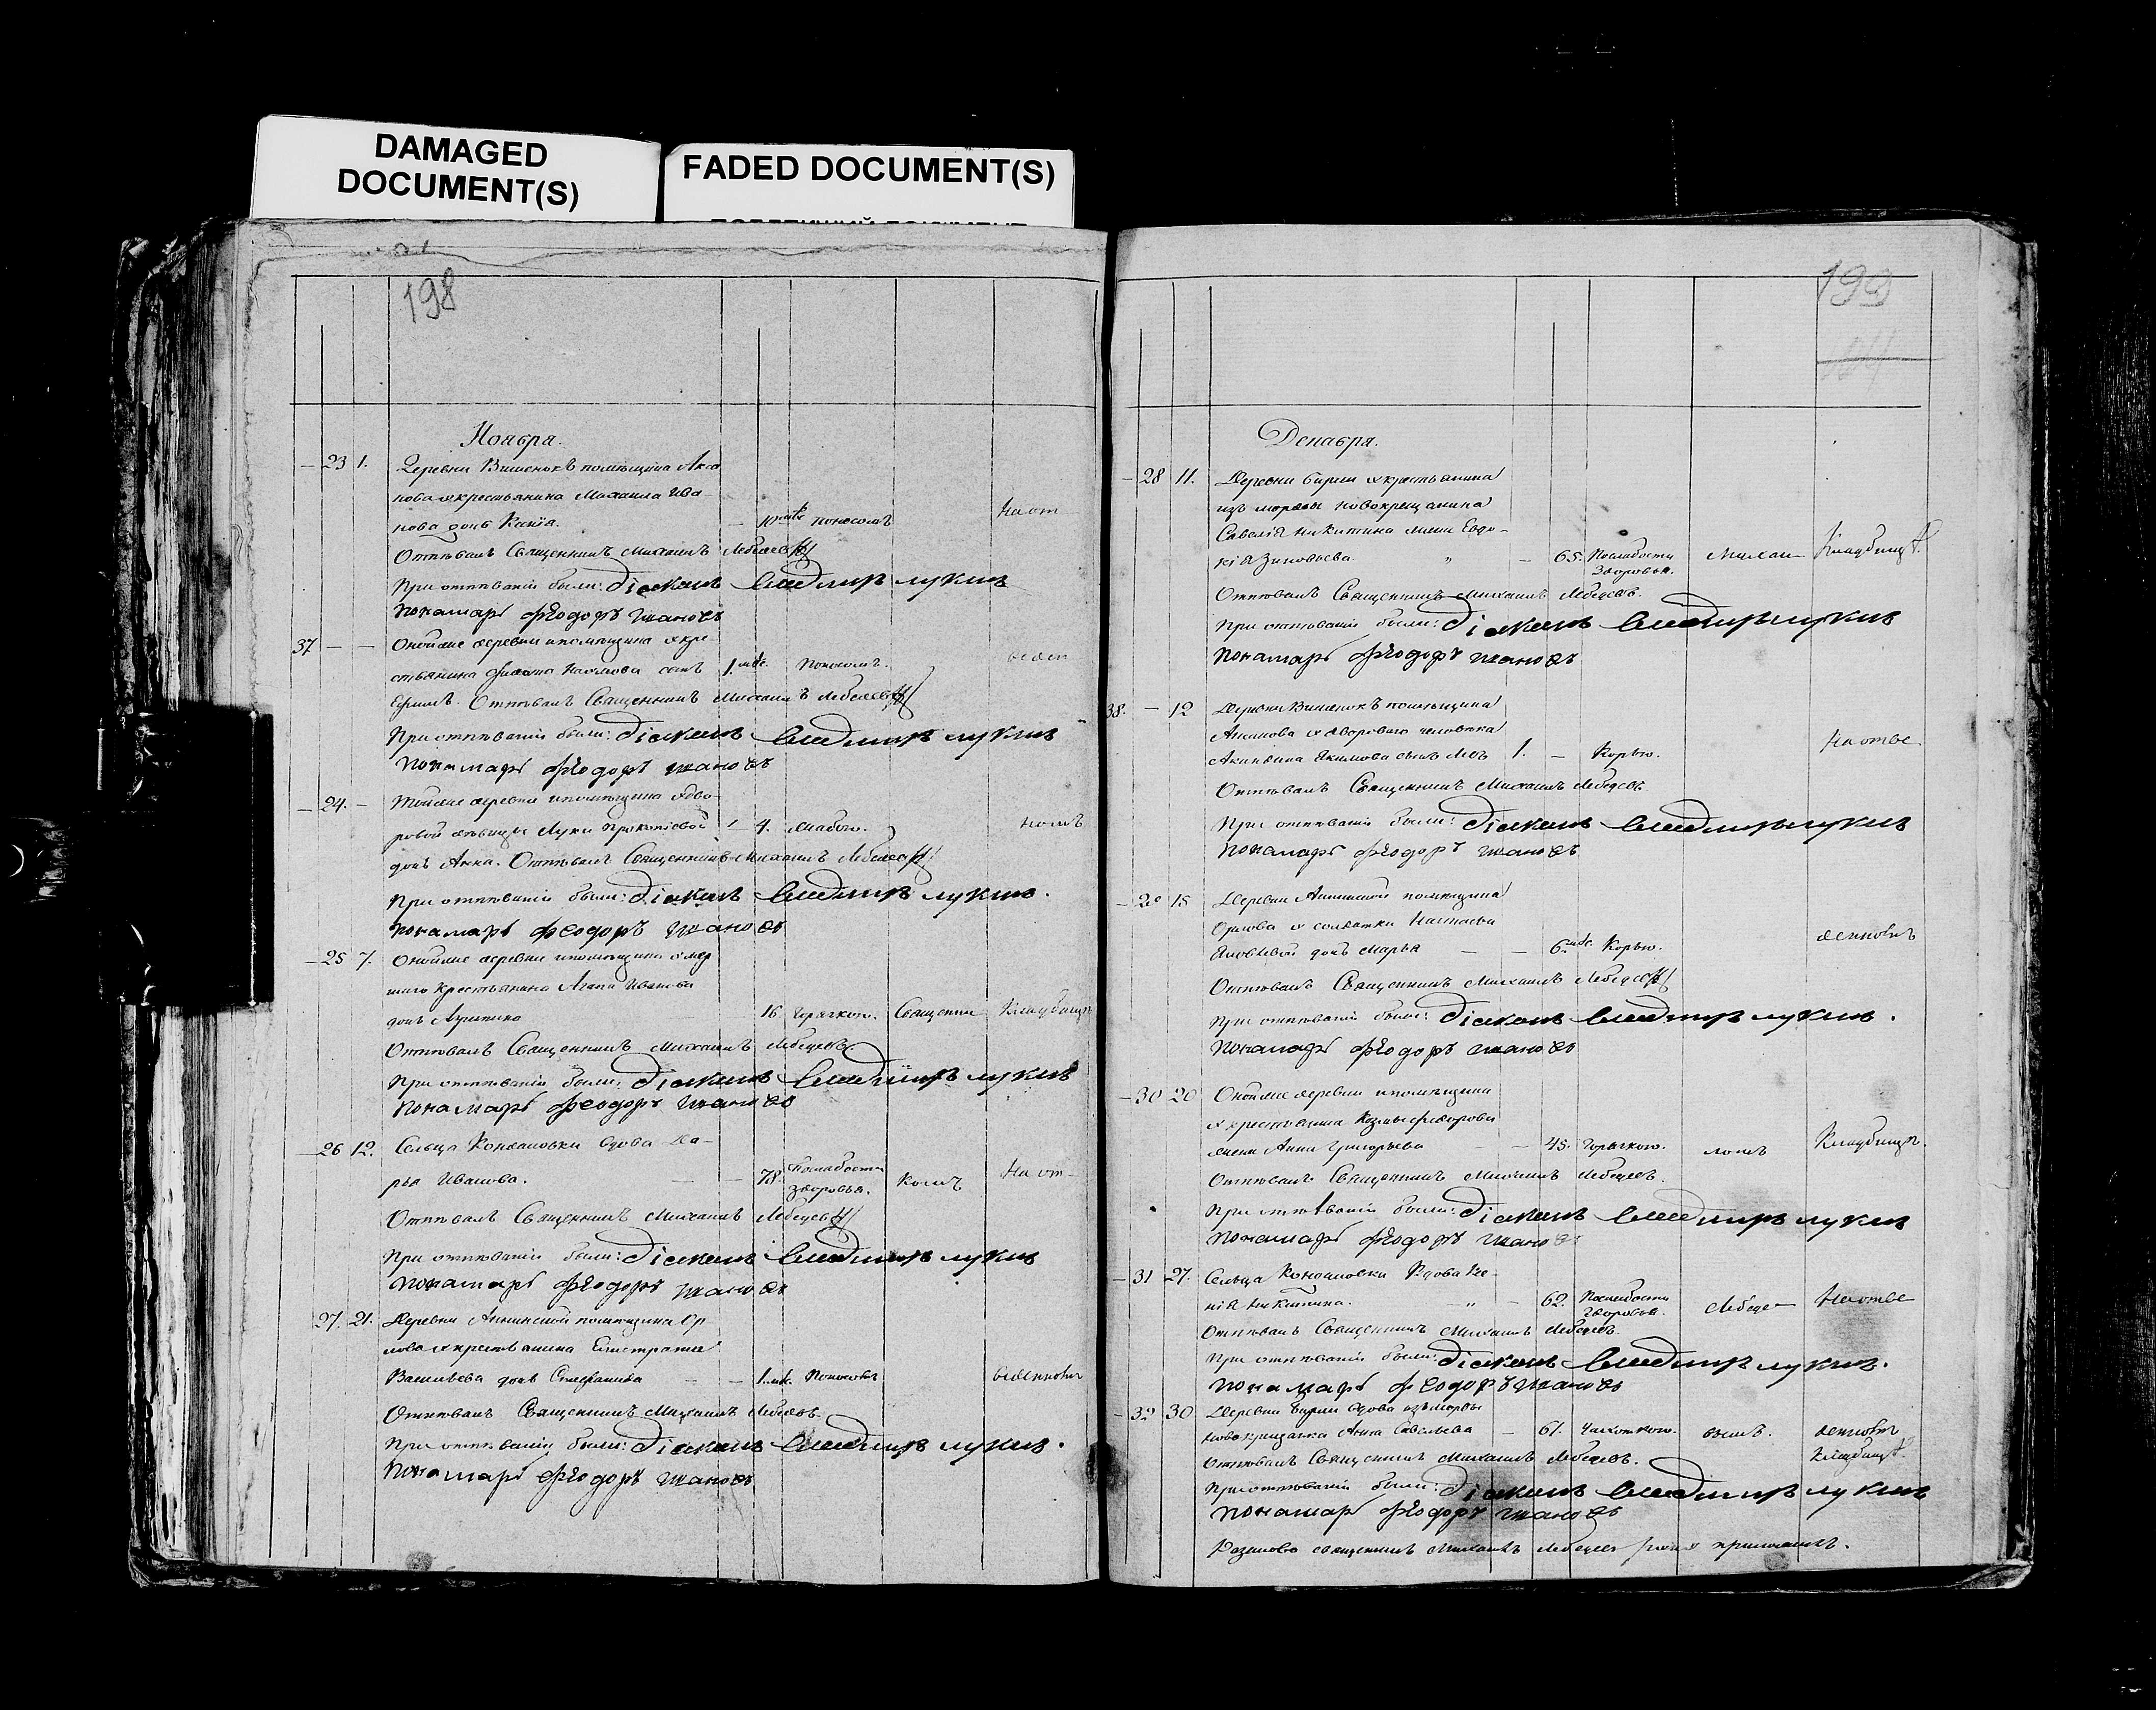 DAMAGED
DOCUMENT(S)
FADED DOCUMENT(S)
198
Ноября.
23 1. Деревни Вишенокъ помѣщика Акса
кова крестьянина Михаила Ива
нова дочь Ксенія. поносомъ На от
Отпѣвалъ Священникъ Михаилъ Лебедевъ
При отпѣваніи были: Діаконъ Владимиръ Лукинъ
Пономарь Ѳеодоръ Ивановъ
37 Оной же деревни и помѣщика кре
стьянина Наумова сынъ 1. мѣс. Поносомъ. веден
Ефимъ. Отпѣвалъ Священникъ Михаилъ Лебедевъ
При отпѣваніи были: Діаконъ Владимиръ Лукинъ
Пономарь Ѳеодоръ Ивановъ
24. Той же деревни и помѣщика дво
ровой дѣвицы Прокопіевой 4. номъ
дочь Анна. Отпѣвалъ Священникъ Михаилъ Лебедевъ
При отпѣваніи были: Діаконъ Владимиръ Лукинъ.
Пономарь Ѳеодоръ Ивановъ
25 7. Оной же деревни и помѣщика умер
шаго крестьянина Иванова
дочь 16 Горячкою. Священни Кладбищѣ
Отпѣвалъ Священникъ Михаилъ Лебедевъ.
При отпѣваніи были: Діаконъ Владимиръ Лукинъ
Пономарь Ѳеодоръ Ивановъ
26 12. Сельца вдова Да-
рья Иванова. 78. По слабости здоровья. комъ На от-
Отпѣвалъ Священникъ Михаилъ Лебедевъ
При отпѣваніи были: Діаконъ Владимиръ Лукинъ
Пономарь Ѳеодоръ Ивановъ
27. 21. Деревни Аннинской помѣщика Ор
лова крестьянина
Васильева дочь Степанида 1. мѣс. Поносомъ веденномъ
Отпѣвалъ Священникъ Михаилъ Лебедевъ.
При отпѣваніи были: Діаконъ Владимиръ Лукинъ.
Пономарь Ѳеодоръ Ивановъ
199
Декабря.
28 11. Деревни Бирли крестьянина
изъ мордвы новокрещанина
Савелія Никитина жена Евдо-
кія Зиновьева. " 65. По слабости здоровья. Михаи- Кладбищѣ.
Отпѣвалъ Священникъ Михаилъ Лебедевъ.
При отпѣваніи были: Діаконъ Владимиръ Лукинъ
Пономарь Ѳеодоръ Ивановъ
38. 12 Деревни Вишенокъ помѣщика
Аксакова двороваго человѣка
Якимова сынъ 1. Корью. На отве
Отпѣвалъ Священникъ Михаилъ Лебедевъ
При отпѣваніи были: Діаконъ Владимиръ Лукинъ
Пономарь Ѳеодоръ Ивановъ
29 15 Деревни Аннинской помѣщика
Орлова солдатки Настасьи
Яковлевой дочь Марья 6. мѣс. Корью. денномъ
Отпѣвалъ Священникъ Михаилъ Лебедевъ
При отпѣваніи были: Діаконъ Владимиръ Лукинъ.
Пономарь Ѳеодоръ Ивановъ
30 20 Оной же деревни и помѣщика
крестьянина Козмы Ѳедорова
жена Анна Григорьева 45. Горячкою. ломъ Кладбищѣ.
Отпѣвалъ Священникъ Михаилъ Лебедевъ.
При отпѣваніи были: Діаконъ Владимиръ Лукинъ
Пономарь Ѳеодоръ Ивановъ
31 27. Сельца вдова Ксе-
нія Никитина. " 62. По слабости здоровья. Лебеде- На отве
Отпѣвалъ Священникъ Михаилъ Лебедевъ.
При отпѣваніи были: Діаконъ Владимиръ Лукинъ.
Пономарь Ѳеодоръ Ивановъ
32 30 Деревни Бирли вдова изъ мордвы
новокрещанка Анна Савельева 61. Чахоткою. вымъ. денномъ
Отпѣвалъ Священникъ Михаилъ Лебедевъ. Кладбищѣ
При отпѣваніи были: Діаконъ Владимиръ Лукинъ
Пономарь Ѳеодоръ Ивановъ
священникъ Михаилъ Лебедевъ